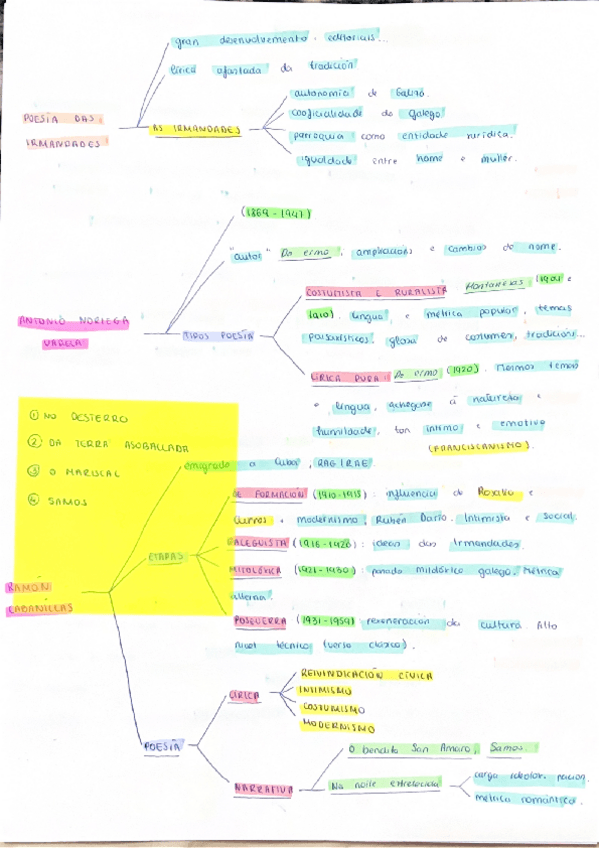 gran desenvolvemento editoriais...
lírica afastada da tradición
POESÍA DAS
IRMANDADES
AS IRMANDADES
autonomía de Galiza.
cooficialidade do galego
parroquia como entidade xurídica.
igualdade entre home e muller.
(1869-1947)
"autor" Do ermo, ampliacións e cambios de nome.
ANTONIO NORIEGA
VARELA
TIPOS POESÍA
COSTUMISTA E RURALISTA Montañesas (1904 e
1910). lingua e métrica popular, temas
paisaxísticos, glosa de costumes, tradición...
LÍRICA PURA: Do ermo (1920). Mesmos temas
e lingua, achégase á natureza e
humildade, ton íntimo e emotivo
(FRANCISCANISMO).
① NO DESTERRO
② DA TERRA ASOBALLADA
③ O MARISCAL
④ SAMOS
emigrado a Cuba, RAG/RAE
RAMÓN
CABANILLAS
ETAPAS
DE FORMACIÓN (1910-1915): influencia de Rosalía e
Curros + modernismo, Rubén Darío. Intimista e social.
GALEGUISTA (1916-1920): ideas das Irmandades.
MITOLÓXICA (1921-1930): pasado histórico galego. Métrica
POSGUERRA (1931-1959) rexeneración da cultura. Alto
nivel técnico (verso clásico).
POESÍA
LÍRICA
REIVINDICACIÓN CÍVICA
INTIMISMO
COSTUMISMO
MODERNISMO
NARRATIVA
O bendito San Amaro, Samos.
Na noite estrelecida
carga ideolox. nacion.
métrica romántica.